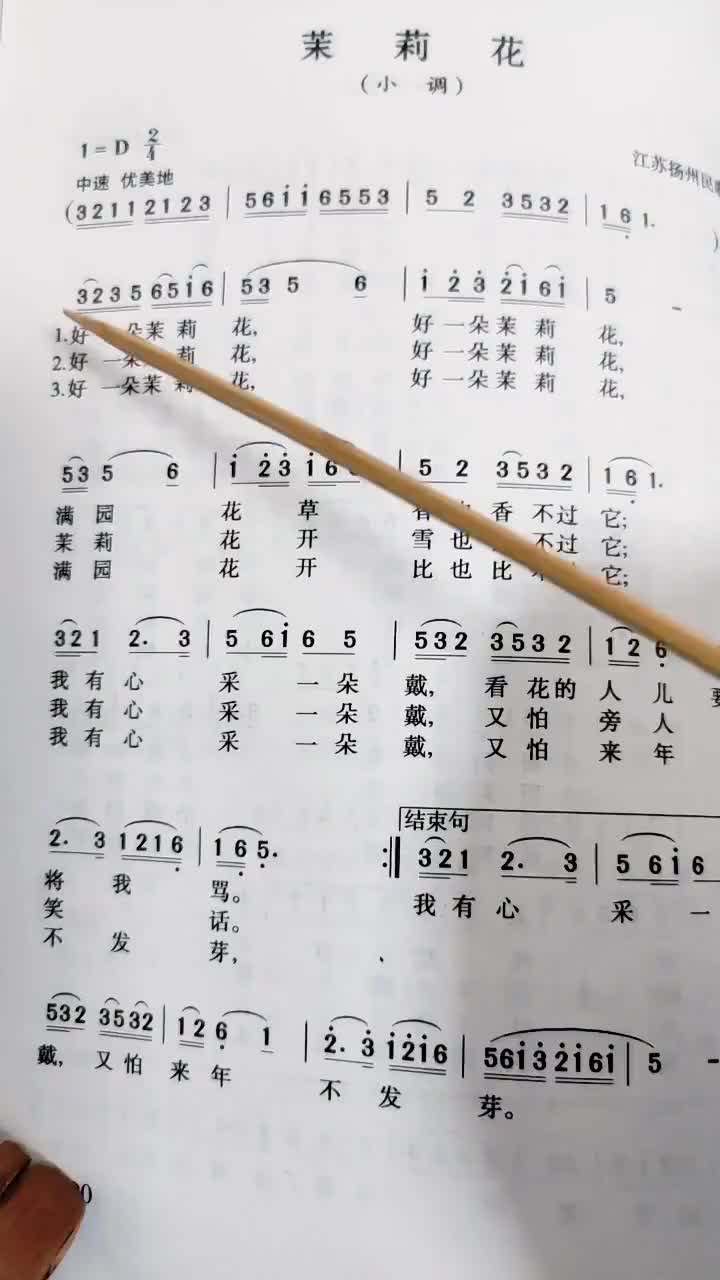 茉 莉 花
(小 调)
1=D 2/4
江苏扬州民歌
中速 优美地
(3211 2123 | 56i̇i̇ 6553 | 5 2 3532 | 1 6̣ 1. )
3235 65i̇6 | 53 5 6 | i̇ 2̇3̇ 2̇i̇6i̇ | 5 -
1.好一朵茉 莉 花, 好一朵茉 莉 花,
2.好一朵茉 莉 花, 好一朵茉 莉 花,
3.好一朵茉 莉 花, 好一朵茉 莉 花,
53 5 6 | i̇ 2̇3̇ i̇6 | 5 2 3532 | 1 6̣ 1.
满 园 花 草 香 也 香 不过 它;
茉 莉 花 开 雪 也 不过 它;
满 园 花 开 比 也 比 它;
321 2. 3 | 5 6i̇ 6 5 | 532 3532 | 12 6̣
我 有 心 采 一 朵 戴, 看 花的 人 儿 要
我 有 心 采 一 朵 戴, 又 怕 旁 人
我 有 心 采 一 朵 戴, 又 怕 来 年
结束句
2. 3 1216̣ | 1 6̣ 5̣. :‖ 321 2. 3 | 5 6i̇ 6
将 我 骂。 我 有 心 采 一
笑 话。
不 发 芽,
532 3532 | 12 6̣ 1 | 2̇. 3̇ i̇2̇i̇6 | 56i̇3̇ 2̇i̇6i̇ | 5 -
戴, 又 怕 来 年 不 发 芽。